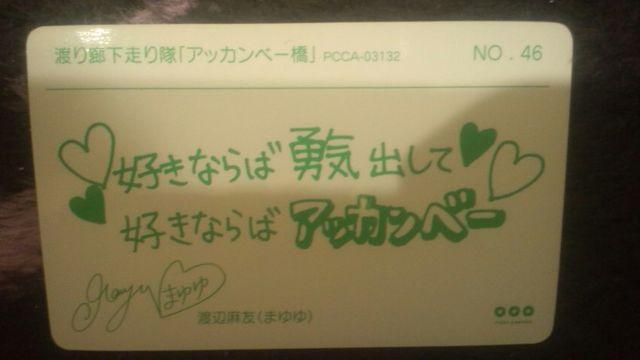 渡り廊下走り隊「アッカンベー橋」 PCCA-03132 NO.46
好きならば 勇気 出して
好きならば アッカンベー
Mayu まゆゆ
渡辺麻友(まゆゆ)